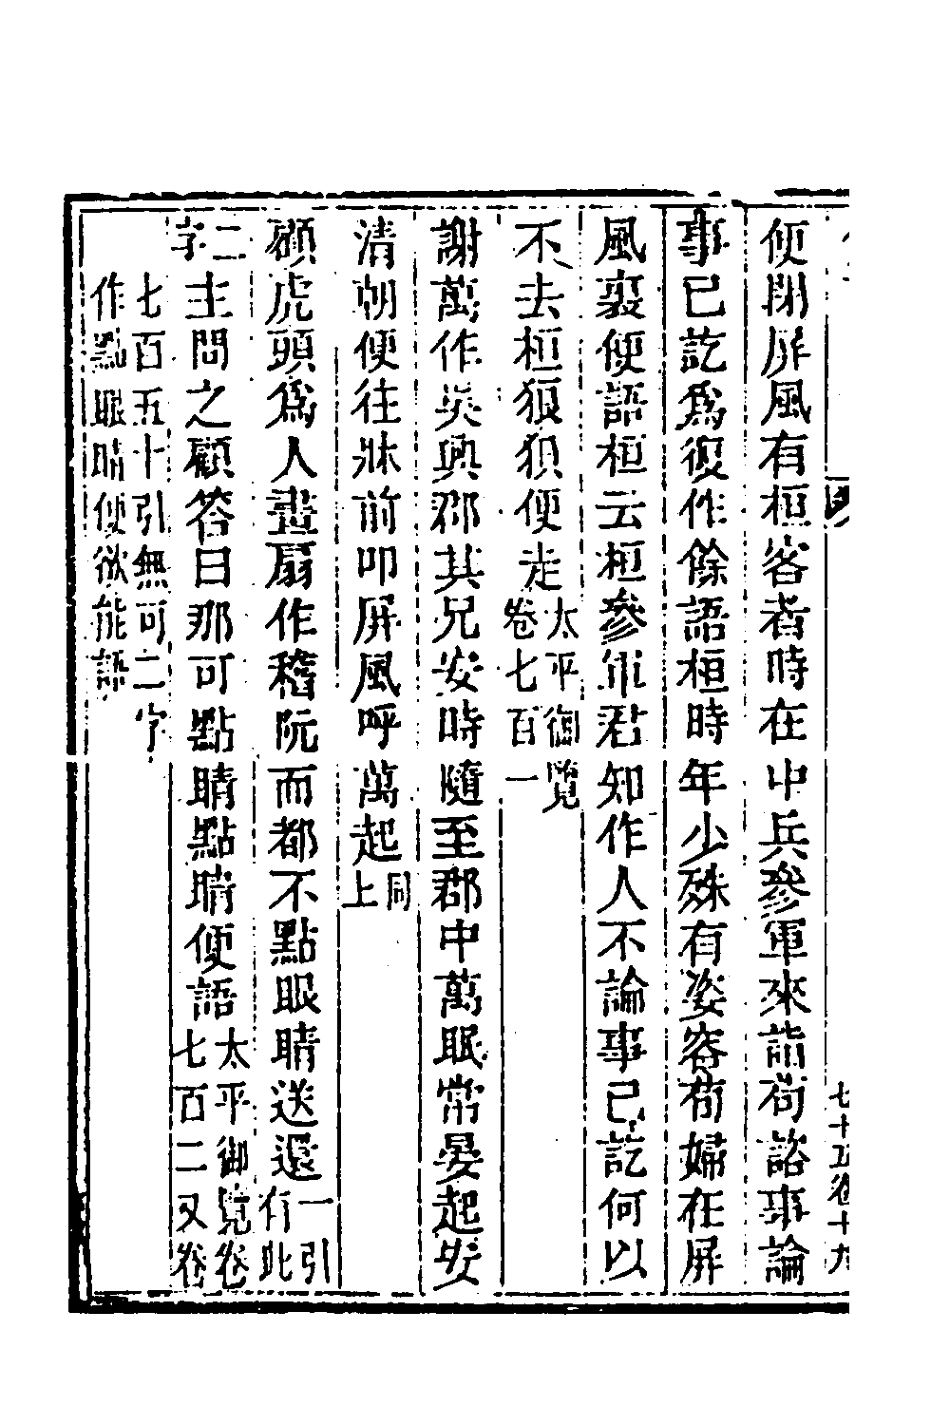 便閉屏風有桓客者時在中兵參軍來詣荀諮事論
事已訖爲復作餘語桓時年少殊有姿容荀婦在屏
風裏便語桓云桓參軍君知作人不論事已訖何以
不去桓狼狽便走太平御覽卷七百一
謝萬作吳興郡其兄安時隨至郡中萬眠常晏起安
清朝便往牀前叩屏風呼萬起同上
顧虎頭爲人畫扇作嵇阮而都不點眼睛送還一引有此
二字主問之顧答曰那可點睛點睛便語太平御覽卷七百二又卷
七百五十引無可二字
作點眼睛便欲能語